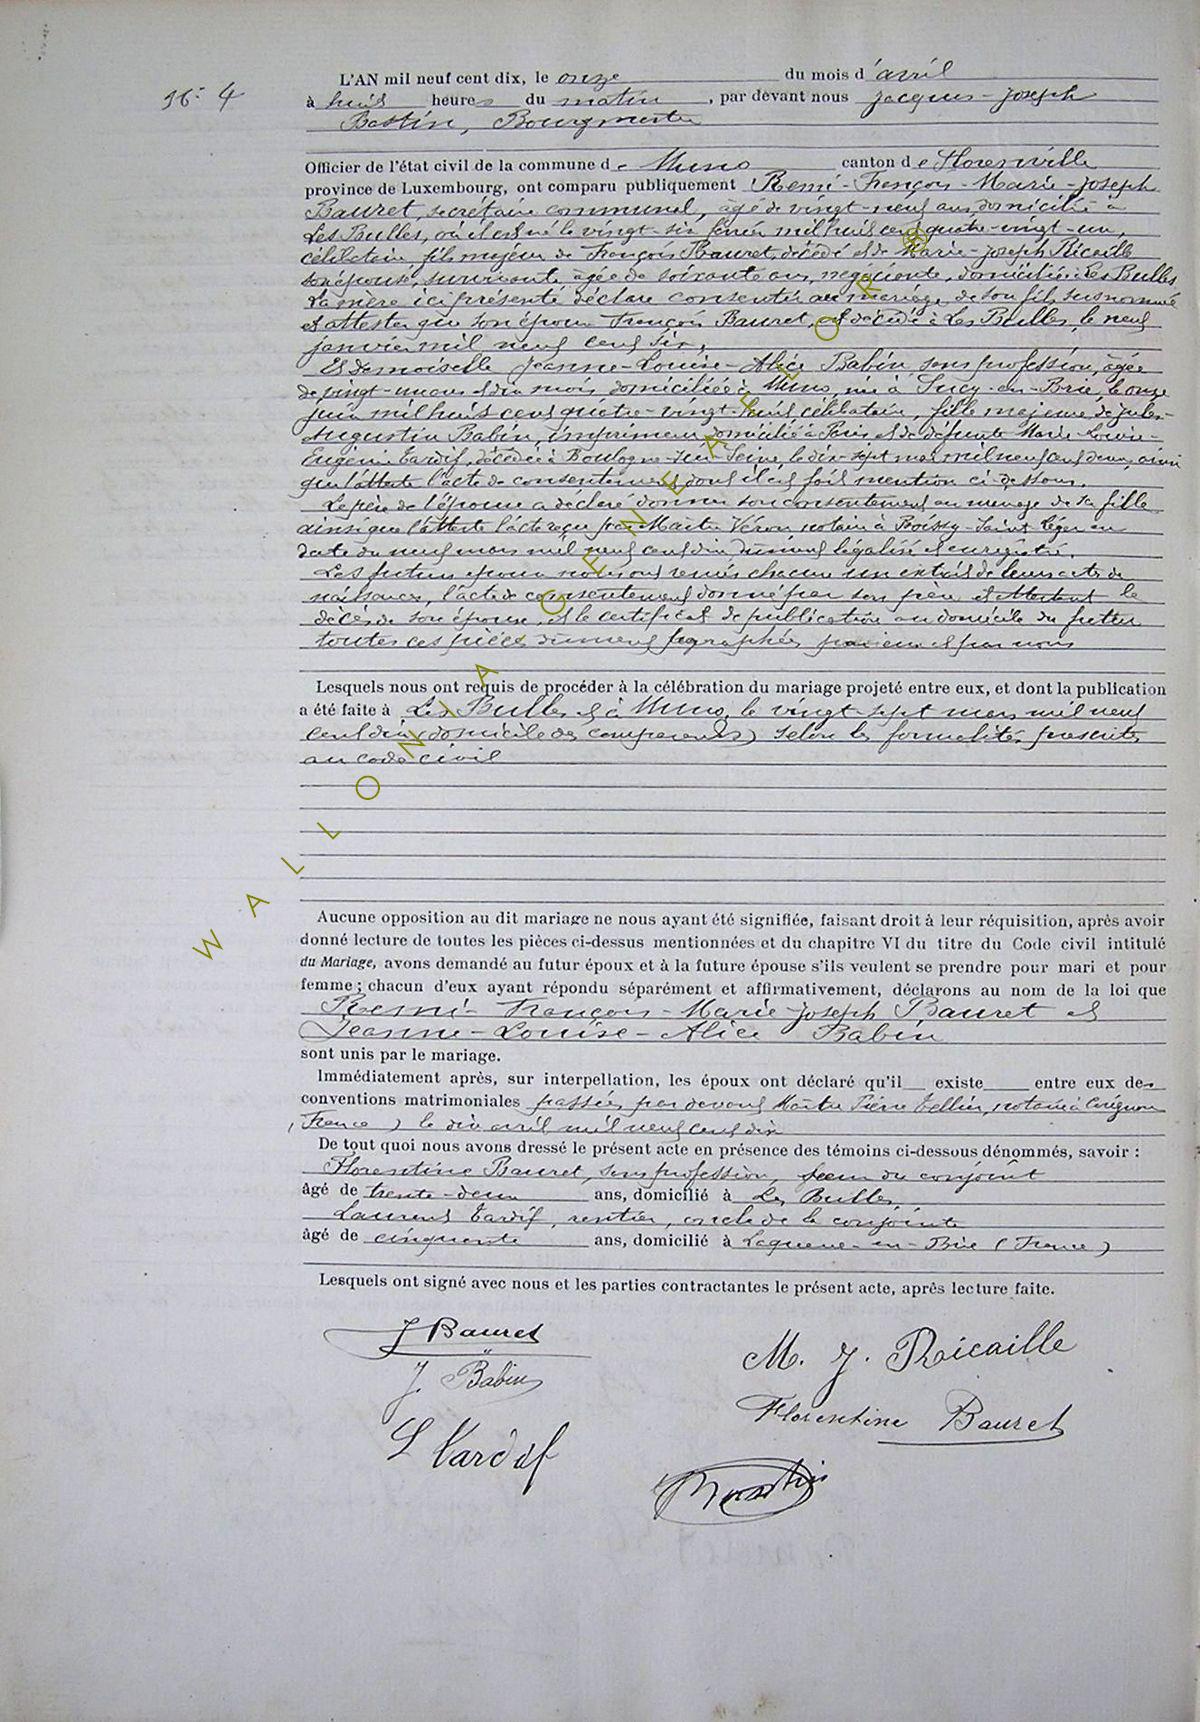 N° 4
L'AN mil neuf cent dix, le onze du mois d'avril
à huit heures du matin, par devant nous Jacques-Joseph
Bastin, Bourgmestre
Officier de l'état civil de la commune de Muno canton de Florenville
province de Luxembourg, ont comparu publiquement Remi-François-Marie-Joseph
Bauret, secrétaire communal, âgé de vingt-neuf ans, domicilié à
Les Bulles, où il est né le vingt-six février mil huit cent quatre-vingt-un,
célibataire, fils majeur de François Bauret, décédé et de Marie-Joseph Ricaille
son épouse, survivante, âgée de soixante ans, négociante, domiciliée à Les Bulles
La mère ici présente déclare consentir au mariage de son fils susnommé
et attester que son époux François Bauret, est décédé à Les Bulles, le neuf
janvier mil neuf cent six,
Et demoiselle Jeanne-Louise-Alice Babin, sans profession, âgée
de vingt-un ans et dix mois, domiciliée à Muno, née à Sucy-en-Brie, le onze
juin mil huit cent quatre-vingt-huit, célibataire, fille majeure de Jules-
Augustin Babin, imprimeur, domicilié à Paris et de défunte Marie-Louise-
Eugénie Tardif, décédée à Boulogne-sur-Seine, le dix-sept mai mil neuf cent deux, ainsi
que l'atteste l'acte de consentement dont il est fait mention ci-dessous.
Le père de l'épouse a déclaré donner son consentement au mariage de sa fille
ainsi que l'atteste l'acte reçu par Maître Véron notaire à Boissy-Saint Léger en
date du neuf mars mil neuf cent dix, dûment légalisé et enregistré.
Les futurs époux nous ont remis chacun un extrait de leurs actes de
naissances, l'acte de consentement donné par son père et attestant le
décès de son épouse, et le certificat de publication au domicile du futur
toutes ces pièces dûment paraphées par eux et par nous
Lesquels nous ont requis de procéder à la célébration du mariage projeté entre eux, et dont la publication
a été faite à Les Bulles et à Muno, le vingt-sept mars mil neuf
cent dix (domicile des comparants) selon les formalités prescrites
au code civil
Aucune opposition au dit mariage ne nous ayant été signifiée, faisant droit à leur réquisition, après avoir
donné lecture de toutes les pièces ci-dessus mentionnées et du chapitre VI du titre du Code civil intitulé
du Mariage, avons demandé au futur époux et à la future épouse s'ils veulent se prendre pour mari et pour
femme ; chacun d'eux ayant répondu séparément et affirmativement, déclarons au nom de la loi que
Remi-François-Marie-Joseph Bauret et
Jeanne-Louise-Alice Babin
sont unis par le mariage.
Immédiatement après, sur interpellation, les époux ont déclaré qu'il existe entre eux des
conventions matrimoniales passées par devant Maître Pierre Tellier, notaire à Carignan
(France) le dix avril mil neuf cent dix
De tout quoi nous avons dressé le présent acte en présence des témoins ci-dessous dénommés, savoir :
Florentine Bauret, sans profession, soeur du conjoint
âgé de trente-deux ans, domicilié à Les Bulles,
Laurent Tardif, rentier, oncle de la conjointe
âgé de cinquante ans, domicilié à Laqueue-en-Brie (France)
Lesquels ont signé avec nous et les parties contractantes le présent acte, après lecture faite.
J Bauret
M. J. Ricaille
J. Babin
Florentine Bauret
L Tardif
Bastin
WALLONIA GENEALECOR ®